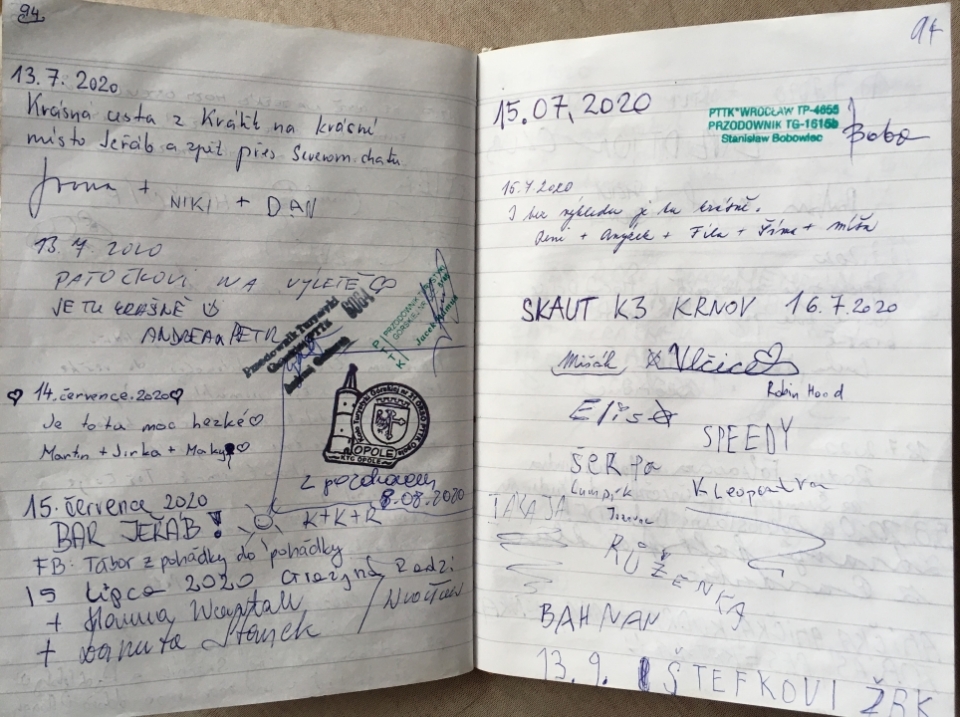 94
13.7.2020
Krásná cesta z Králík na krásné
místo Jeřáb a zpět přes Severom. chatu
+ NIKI + DAN
13.7.2020
PATOČKOVI NA VÝLETĚ
JE TU KRÁSNĚ
ANDREA a PETR
Przodownik Turystyki
6064
14. července. 2020
Je to tu moc hezké
Martin + Jirka + Maky
OPOLE
KTG OPOLE
z pozdrowieniem
8.08.2020
K+K+R
15. července 2020
BAR JEŘÁB!
FB: Tábor z pohádky do pohádky
15 lipca 2020 Grażyna Radzi
+ Hanna
+ Danuta
94
15.07.2020
PTTK*WROCŁAW TP-4656
PRZODOWNIK TG-1616b
Stanisław Bobowiec
Bobo
15.7.2020
I bez výhledu je tu krásně.
+ + Fíla + Šíma + Míša
SKAUT K3 KRNOV 16.7.2020
Mišák Vlčice
Robin Hood
Eliso
SPEEDY
ŠERPA
Lumpík Kleopatra
TAKAJA
RŮŽENKA
BAHNAN
13.9. ŠTEFKOVI ŽBK